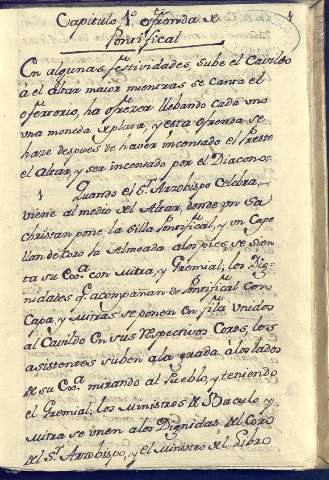 Capitulo 1º ofrenda de
Pontifical
En algunas festividades, sube el Cavildo
á el Altar maior mientras se canta el
ofertorio, ha ofrezer llebando cada uno
una moneda de plata, y esta ofrenda se
haze despues de haver incensado el Preste
el Altar, y ser incensado por el Diacono=
1 Quando el Sr. Arzobispo Celebra,
viene al medio del Altar, donde un Sa
christan pone la Silla Pontifical, y un Cape
llan de Coro la Almoada alos pies, se sien
ta su Exª con Mitra, y Gremial, los Dig-
nidades qe. acompañan de Pontifical con
Capa, y Mitras se ponen en fila Unidos
al Cavildo En sus Respectivos Coros, los
asistentes suben ala grada á los lados
de su Exª mirando al Pueblo, y teniendo
el Gremial, los Ministros de Baculo y
Mitra se unen alos Dignidas del Coro
del Sr. Arzobispo, y el Ministro del Libro